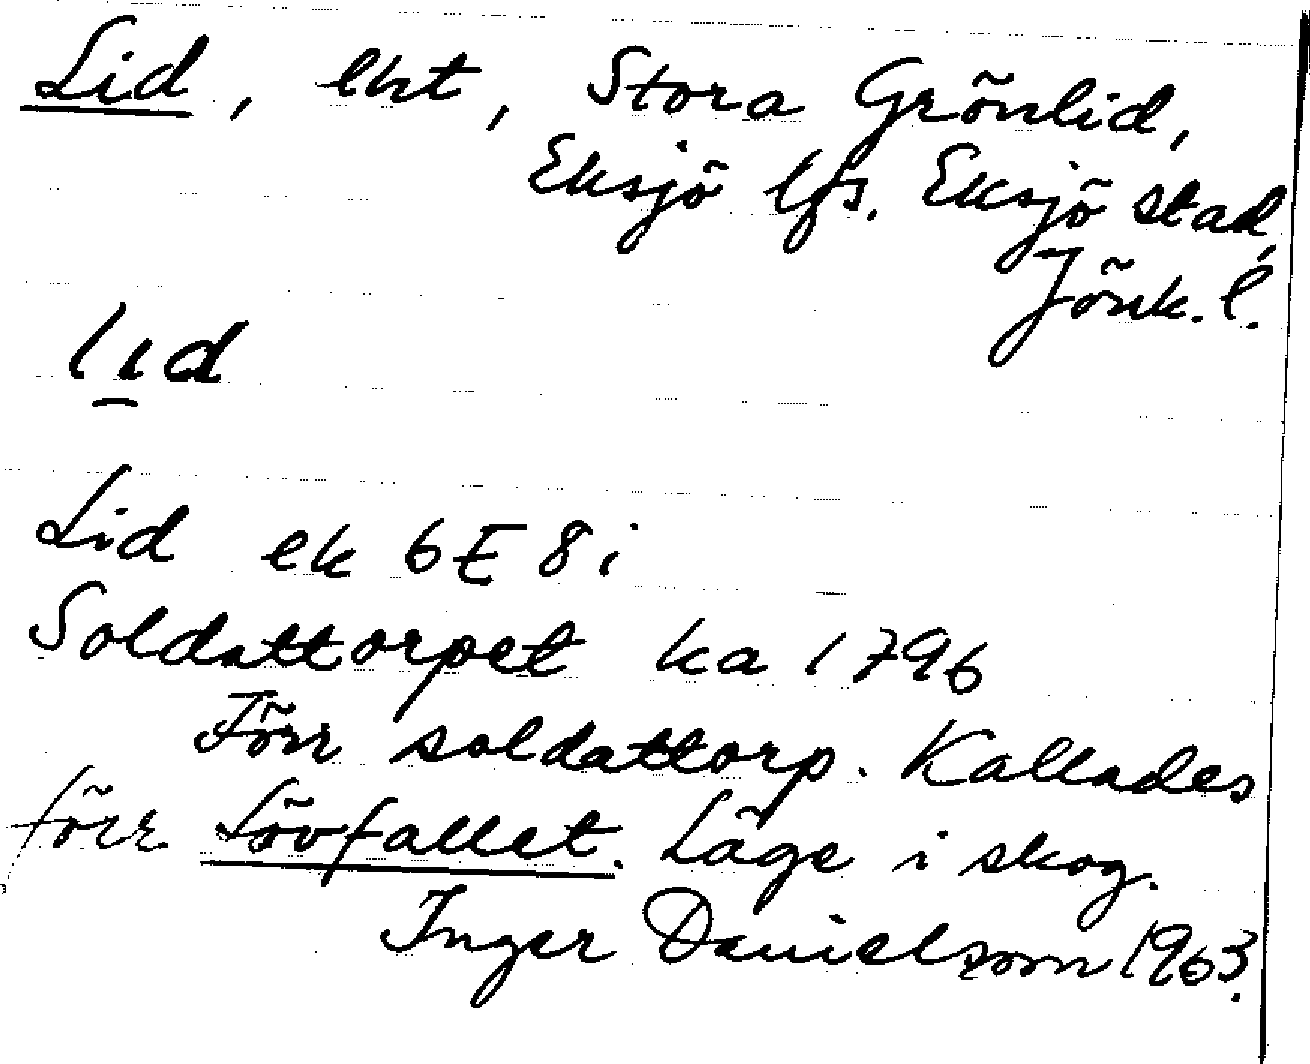 Lid, lht, Stora Grönlid,
Eksjö lfs. Eksjö stad,
Jönk. l.
lıd
Lid ek 6E8i
Soldattorpet ka 1796
Förr soldattorp. Kallades
förr Lövfallet. Läge i skog.
Inger Danielsson 1963.